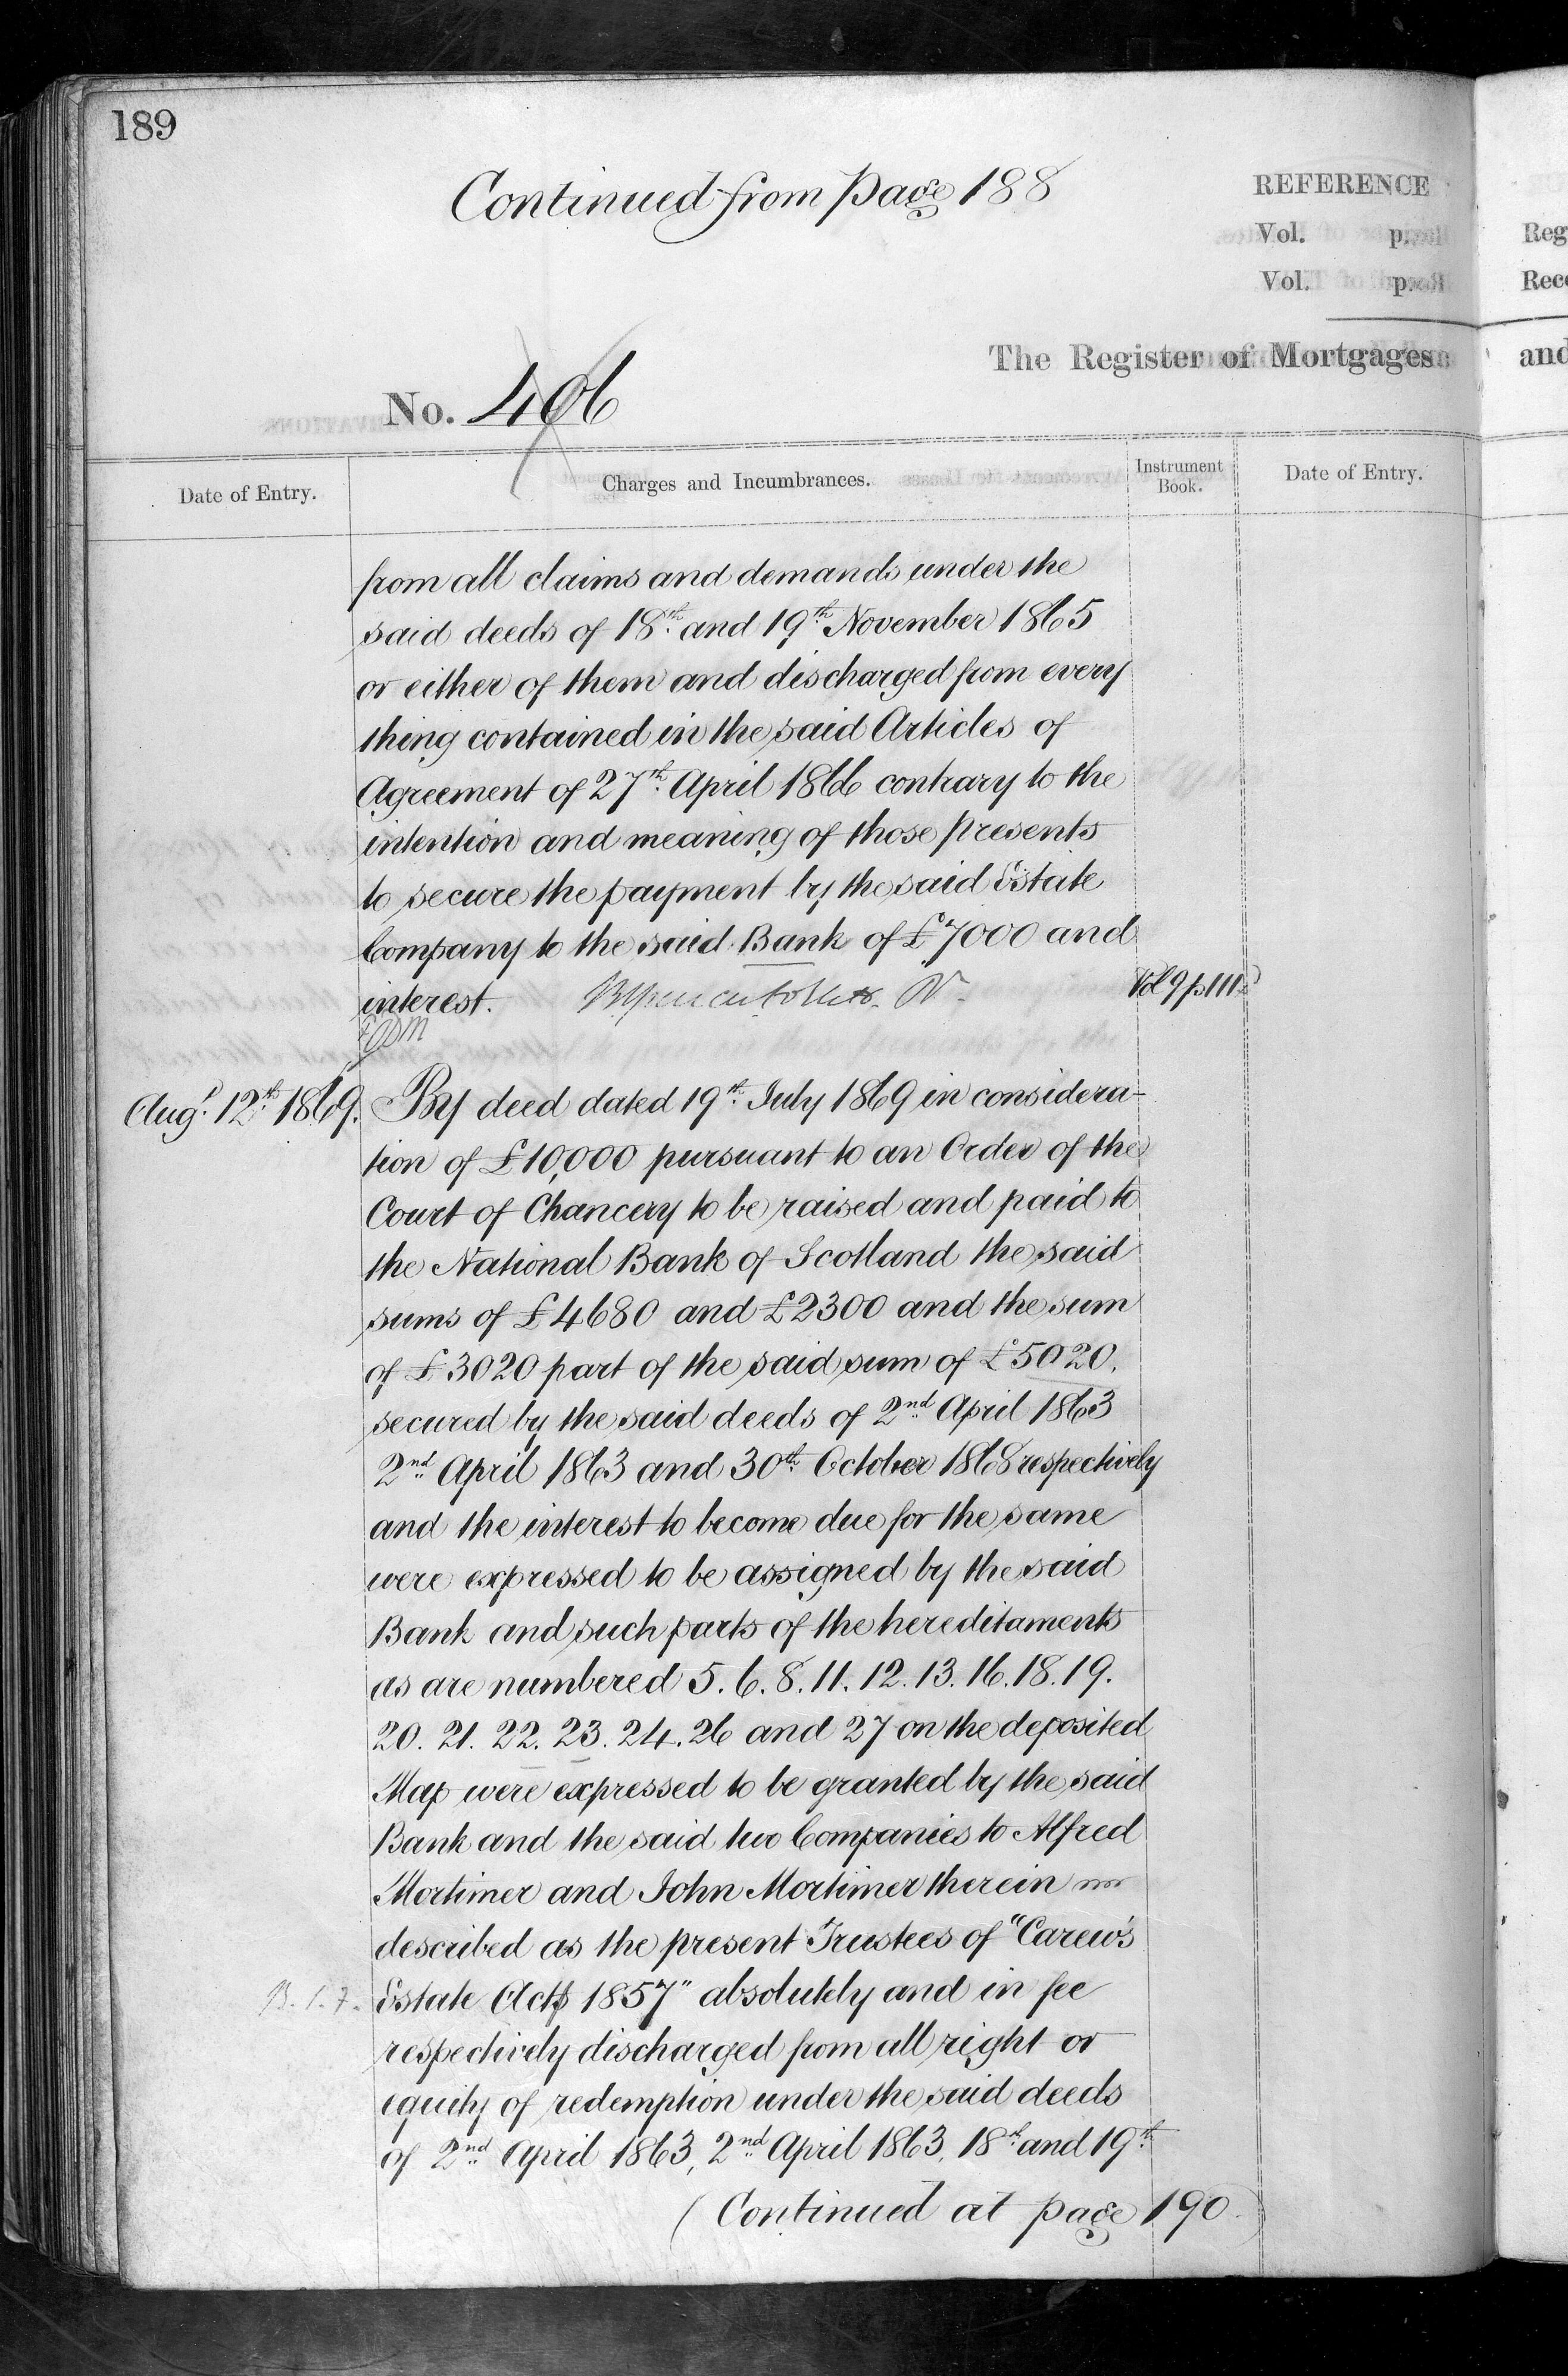 189
Continued from Page 188
REFERENCE
Vol. p.
Vol. p.
Reg
Rec
The Register of Mortgages
and
No. 406
Date of Entry.
Charges and Incumbrances.
Instrument Book.
Date of Entry.
from all claims and demands under the
said deeds of 18th and 19th November 1865
or either of them and discharged from every
thing contained in the said Articles of
Agreement of 27th April 1866 contrary to the
intention and meaning of those presents
to secure the payment by the said Estate
Company to the said Bank of £7000 and
interest.
Vol 9 p 111
Augt. 12th 1869. By deed dated 19th July 1869 in considera-
tion of £10,000 pursuant to an Order of the
Court of Chancery to be raised and paid to
the National Bank of Scotland the said
sums of £4680 and £2300 and the sum
of £3020 part of the said sum of £5020,
secured by the said deeds of 2nd April 1863
2nd April 1863 and 30th October 1868 respectively
and the interest to become due for the same
were expressed to be assigned by the said
Bank and such parts of the hereditaments
as are numbered 5. 6. 8. 11. 12. 13. 16. 18. 19.
20. 21. 22. 23. 24. 26 and 27 on the deposited
Map were expressed to be granted by the said
Bank and the said two Companies to Alfred
Mortimer and John Mortimer therein
described as the present Trustees of "Carew's
Estate Act 1857" absolutely and in fee
respectively discharged from all right or
equity of redemption under the said deeds
of 2nd April 1863, 2nd April 1863, 18th and 19th
(Continued at page 190)